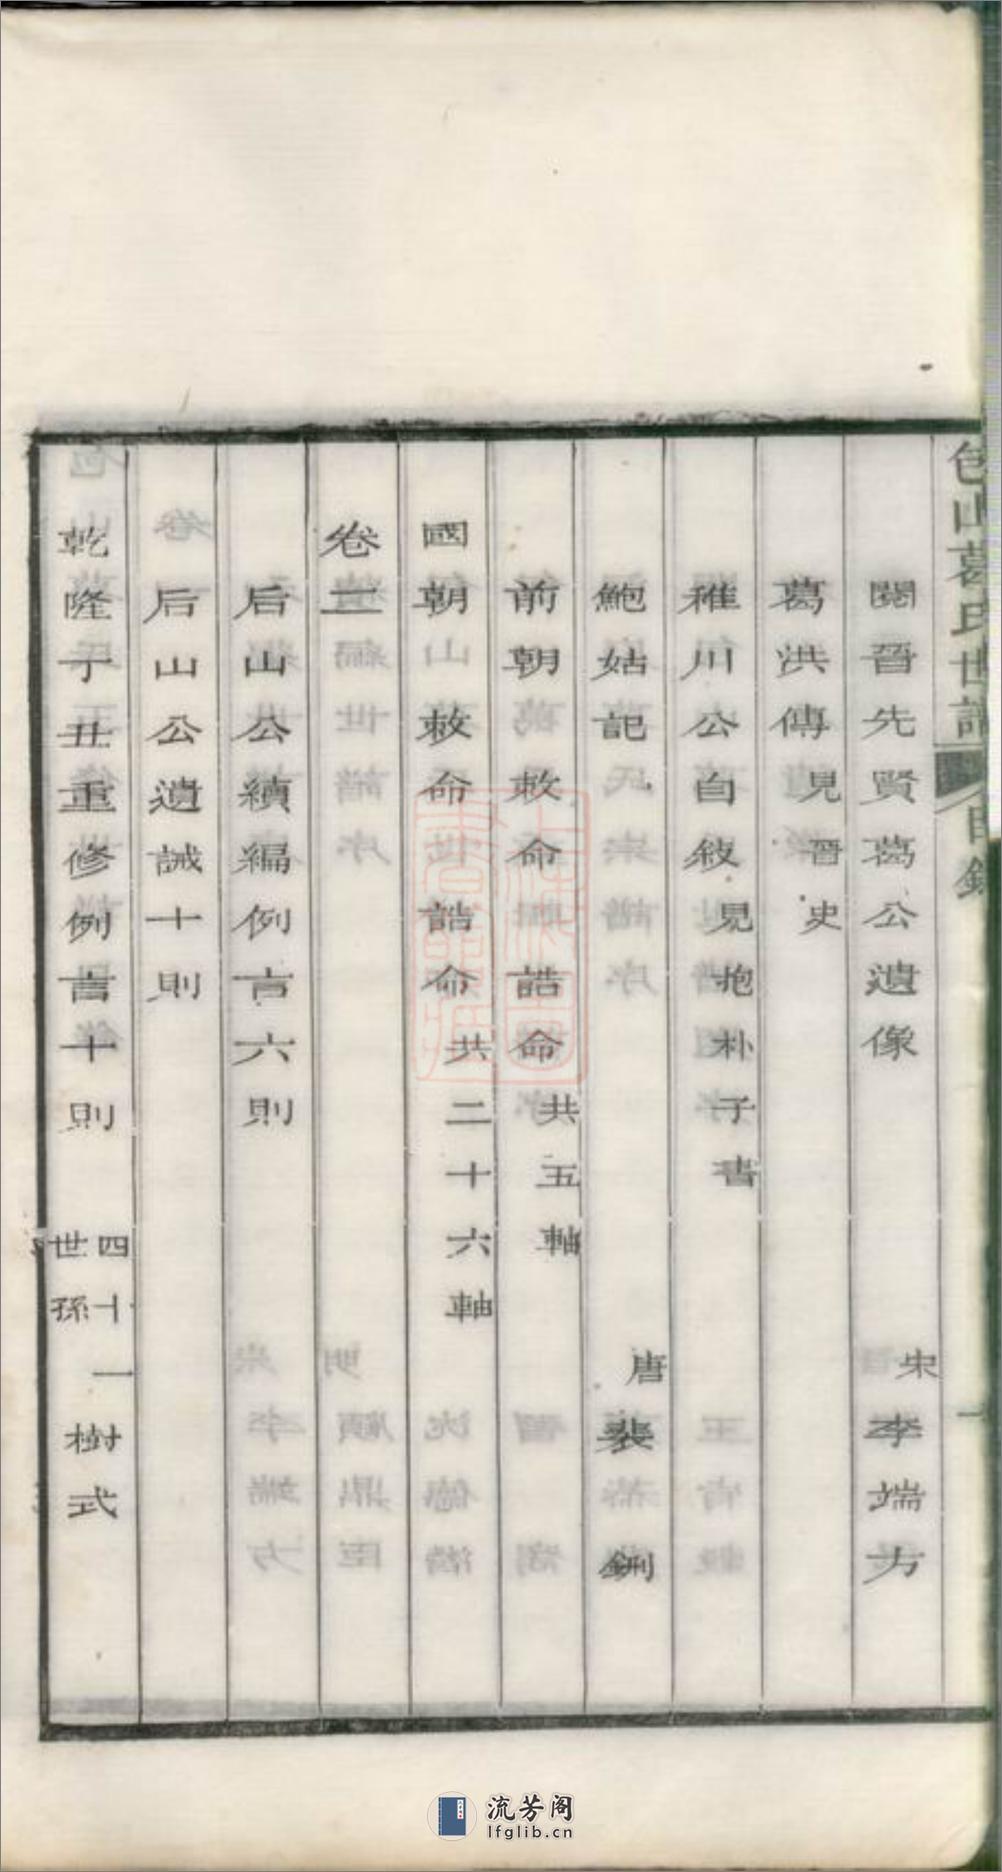 包山葛氏世譜 目錄 一
閱晉先賢葛公遺像 宋李端方
葛洪傳 見晉史
稚川公自敍 見抱朴子書
鮑姑記 唐裴鉶
前朝敕命誥命 共五軸
國朝敕命誥命 共二十六軸
卷二
后山公續編例言六則
后山公遺誡十則
乾隆丁丑重修例言十則 四十一世孫樹式
流芳阁
lfglib.cn